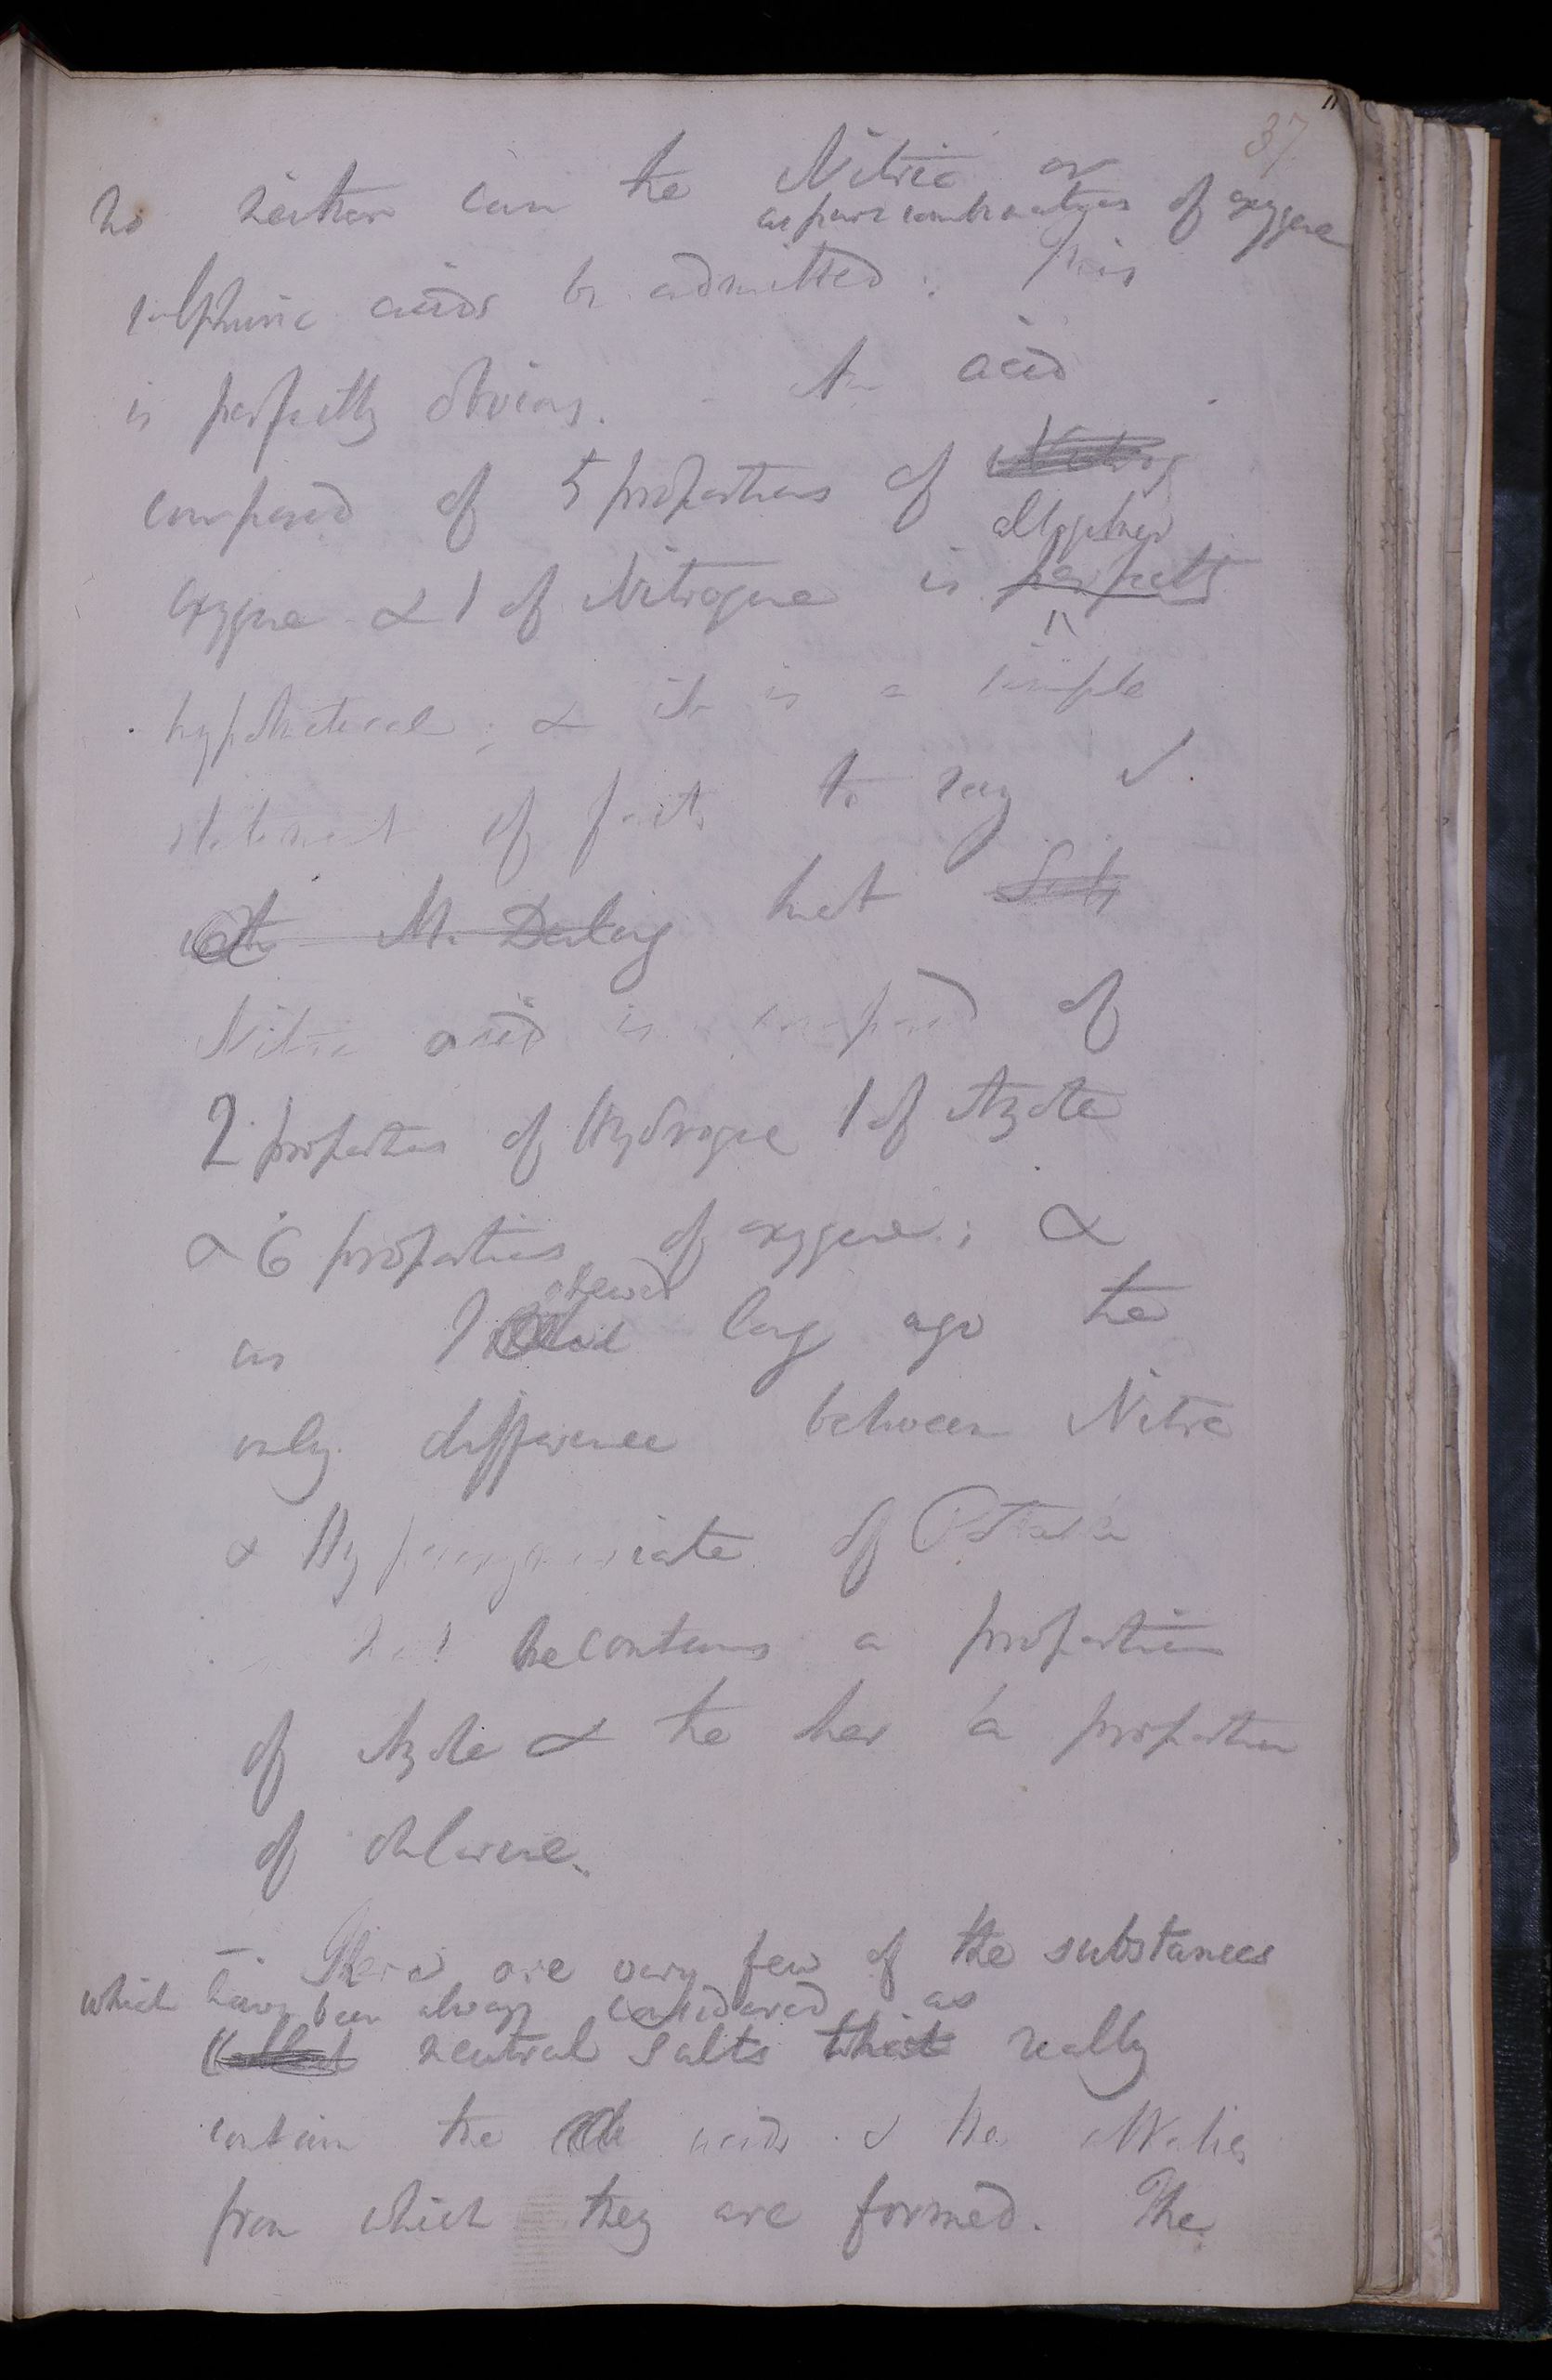 37
11
no neither can the Nitric or
as pure combinations of oxygene
sulphuric acids be admitted: this
is perfectly obvious. - An acid
composed of 5 proportions of Nitrog
alltogether
oxygene & 1 of Nitrogene is perfectly
hypothetical; & it is a simple
statement of facts to say
with M. Dulong that
Nitric acid is composed of
2 proportions of Hydrogene 1 of Azote
& 6 proportions of oxygene; &
shewed
as I long ago the
only difference between Nitre
& Hyperoxymuriate of Potassa
that the contains a proportion
of Azote & the other a proportion
of chlorine.
-. There are very few of the substances
which have been always considered as
called neutral salts which really
contain the acids & the Alkalies
from which they are formed. The